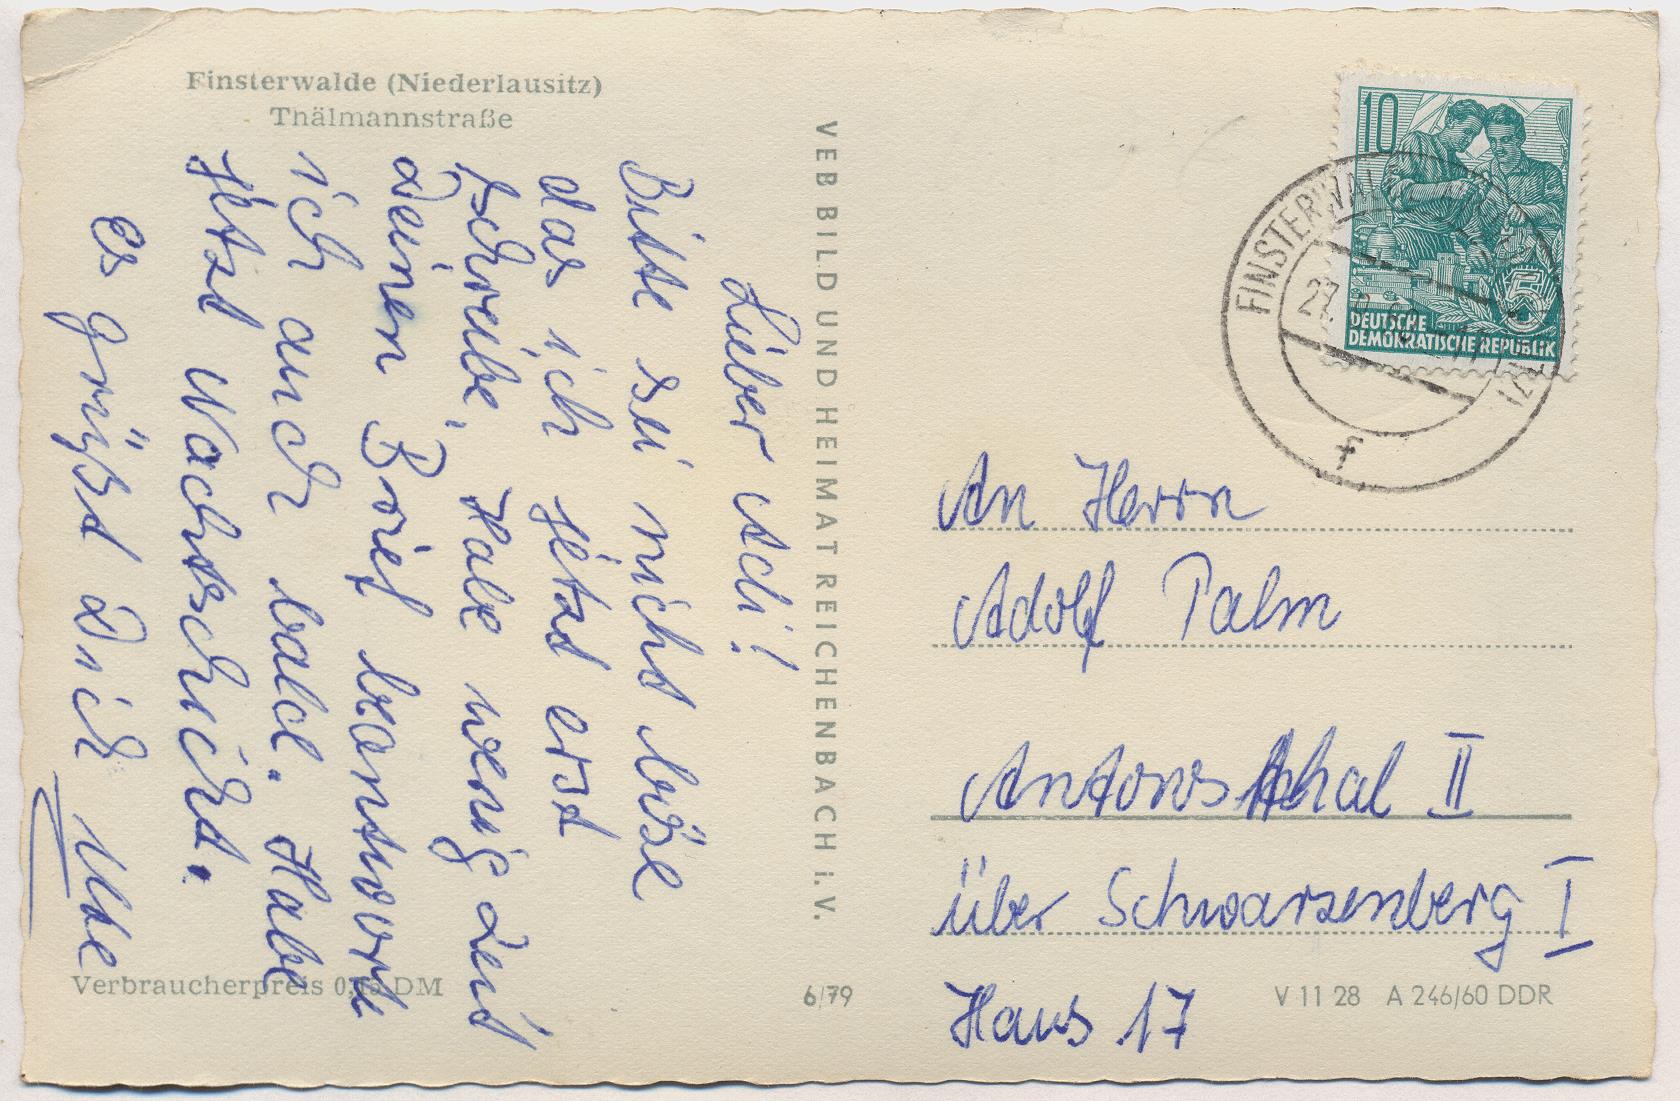 Finsterwalde (Niederlausitz)
Thälmannstraße
Lieber Adi!
Bitte sei nicht böse
das ich jetzt erst
schreibe. Habe wenig Zeit
Deinen Brief beantworte
ich auch bald. Habe
jetzt Nachtschicht.
es grüßt Dich
VEB BILD UND HEIMAT REICHENBACH i. V.
10
5
DEUTSCHE
DEMOKRATISCHE REPUBLIK
FINSTERWAL
27.
f
An Herrn
Adolf Palm
Antonsthal II
über Schwarzenberg I
Haus 17
Verbraucherpreis DM
6/79
V 11 28 A 246/60 DDR